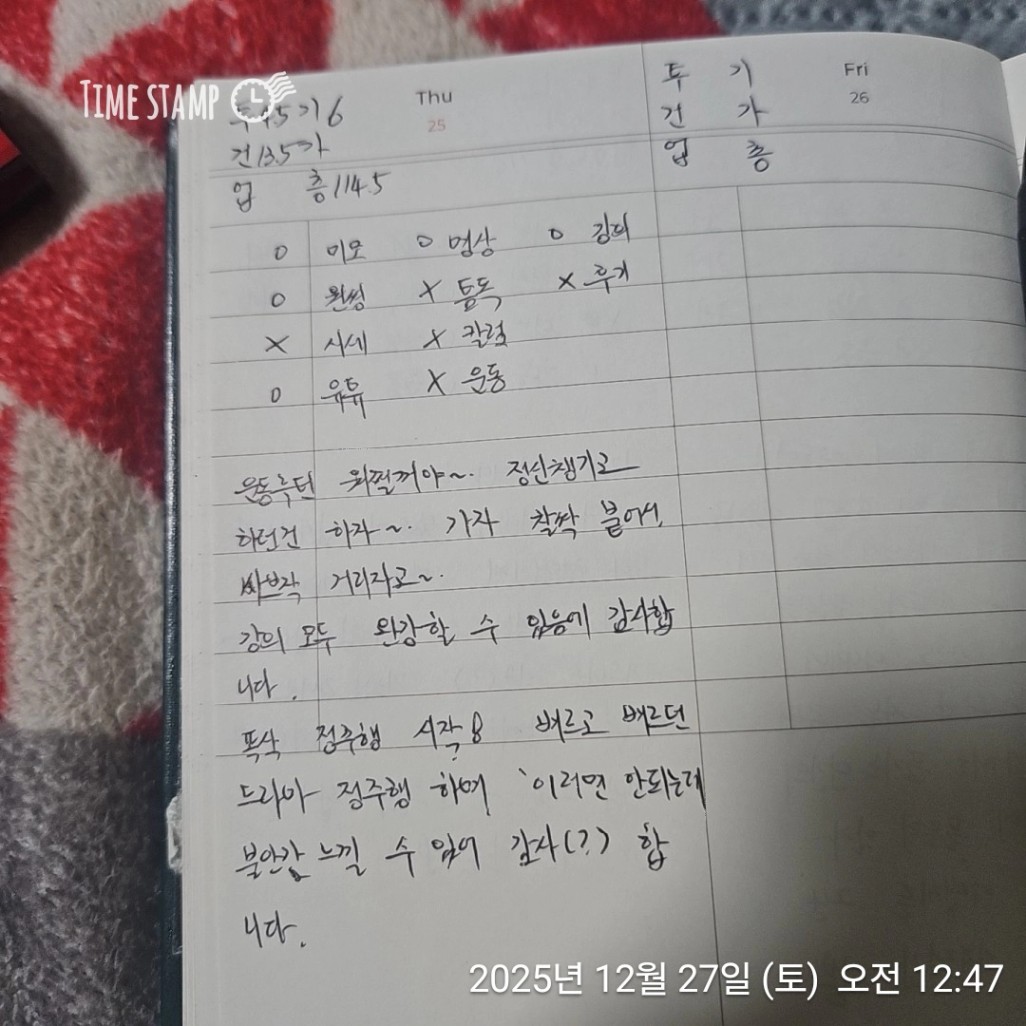 TIME STAMP
투 45 기 6
건 13.5 가
업 총 114.5
Thu
25
투 기
건 가
업 총
Fri
26
O 미모 O 명상 O 강의
O 원씽 X 통독 X 후기
X 시세 X 칼럼
O 유튭 X 운동
운동루틴 워쩔꺼야~. 정신챙기고
하던건 하자~. 가자 찰싹 붙어서,
싸브작 거리자고~.
강의 모두 완강할 수 있음에 감사합
니다.
폭삭 정주행 시작! 벼르고 벼르던
드라마 정주행 하며 '이러면 안되는데
불안감 느낄 수 있어 감사(?) 합
니다.
2025년 12월 27일 (토) 오전 12:47